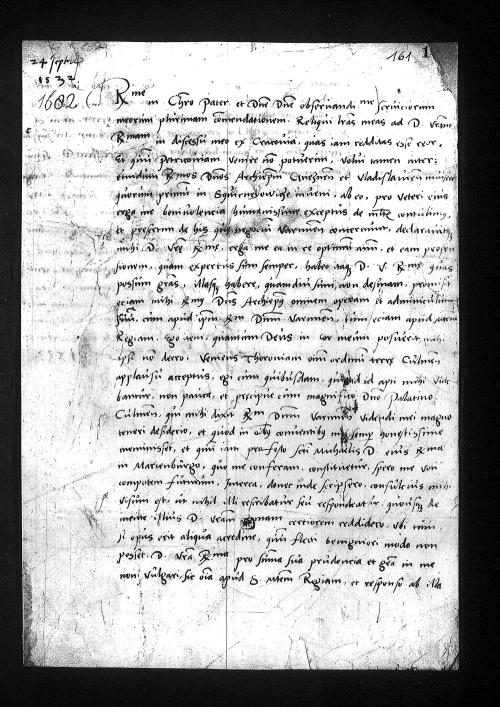 24 Septem
1532
161 1
1602
R me in Chro Pater et Dne Dne observandi me servitiorum
meorum plurimam comendationem. Reliqui lras meas ad D. Vram
Rmam in discessu meo ex Cracovia, quas iam redditas esse reor.
Et quum petricoviam venire no potuerim, volui tamen inter
Rmos Dnos Archiepm Gneznen et Vladislavien
quorum primum in inveni, ab eo, pro veteri eius
erga me benivolencia humanissime exceptus de consiliis,
et presertim de his que Varmien concernunt, declaravit
mihi D. Vre Rme, erga me ea in re optimum aim, et eam propen
sionem, quam expertus sum semper, habeo itaq D. V. Rme quas
possum gras, illasq habere, quamdiu sum, non desinam, promisit
eciam mihi Rmg Dns Archiepg omnem operam et adminiculum
suu, cum apud ipm Rm Dnum Varmien, tum eciam apud
Regiam. Ego vero, quantum Deus in cor meum posuerit mihi
ipse no deero. Veniens Thoroniam omi ordini terre Culmen
applausu acceptus, egi cum quibusdam, qui id api mihi vide
bantur, non pauca, et precipue cum magnifico Dno Palatino
Culmen, qui mihi dixit Rm Dnum Varmien videndi mei magno
teneri desiderio, et quod in oibg conventibg mei semp honestissime
meminisset, et quum iam pro festo Scti Michaelis D. eius Rma
in Marienburgo, quo me conferam, constituetur, spero me voti
compotem futurum, Interea, donec inde scripsero, consulcius mihi
visum est ut nihil illi rescribatur seu respondeatur, quousq de
mente illius D. Vram Rmam cerciorem reddidero, ubi tum
si opus erit aliqua acredine, quum flecti benigniori modo non
posset. D. Vra Rma pro suma sua prudencia et gra in me
non vulgari, sic oia apud S. Mtem Regiam, et responso ab illa